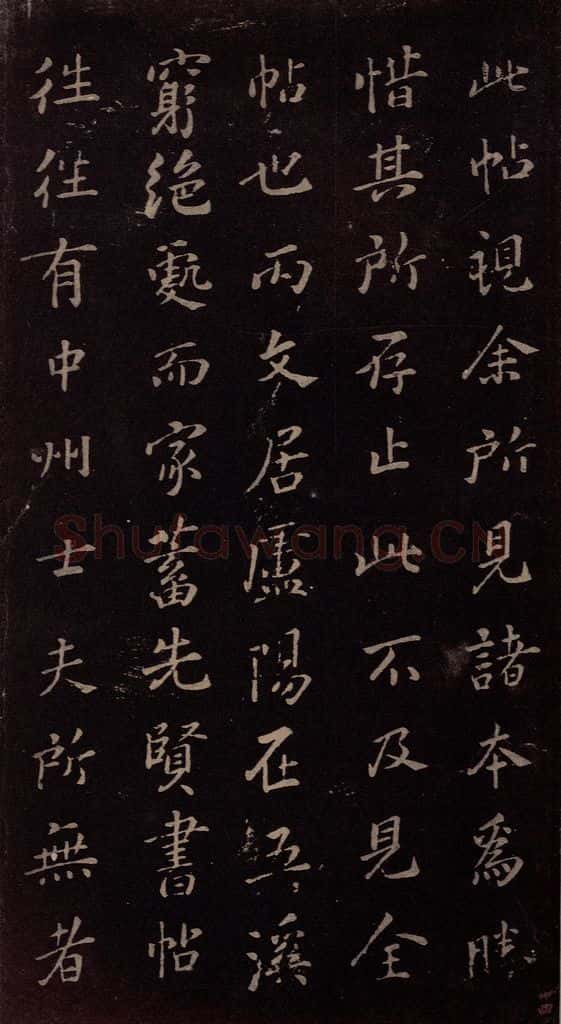 此帖視余所見諸本為勝
惜其所存止此不及見全
帖也丙文居廬陽在五溪
窮絕處而家蓄先賢書帖
往往有中州士夫所無者
Shufawang.CN
十四